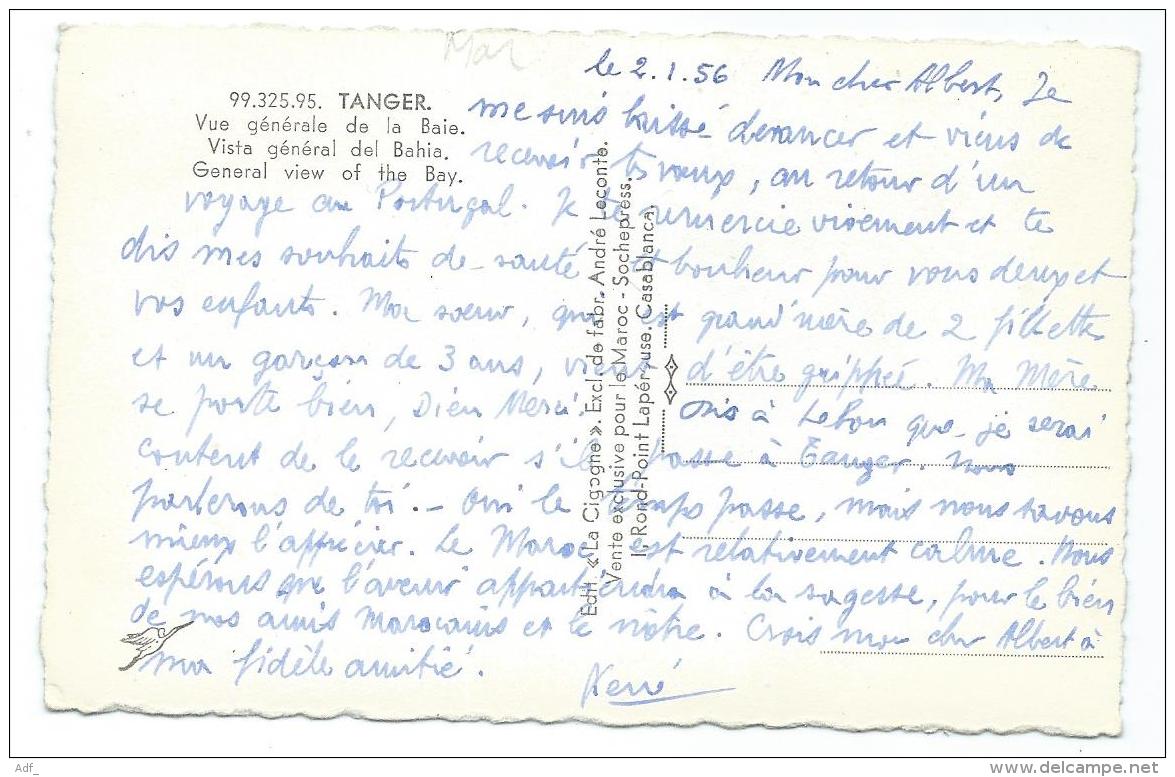 Mar
le 2.1.56 Mon cher Albert, Je
99.325.95. TANGER.
Vue générale de la Baie.
Vista général del Bahia.
General view of the Bay.
me suis laissé devancer et viens de
recevoir tes vœux, au retour d'un
voyage au Portugal. Je te remercie vivement et te
dis mes souhaits de santé et bonheur pour vous deux et
vos enfants. Ma sœur, qui est grand'mère de 2 fillettes
et un garçon de 3 ans, vient d'être grippée. Ma Mère
se porte bien, Dieu Merci. Dis à Lebon que je serai
content de le recevoir s'il passe à Tanger. Nous
parlerons de toi. - Oui le temps passe, mais nous savons
mieux l'apprécier. Le Maroc est relativement calme. Nous
espérons que l'avenir appartiendra à la sagesse, pour le bien
de nos amis Marocains et le nôtre. Crois mon cher Albert à
ma fidèle amitié.
Edit. «La Cigogne». Excl. de fabr. André Leconte.
Vente exclusive pour le Maroc - Sochepress.
1, Rond-Point Lapérouse. Casablanca.
Adf_
www.delcampe.net